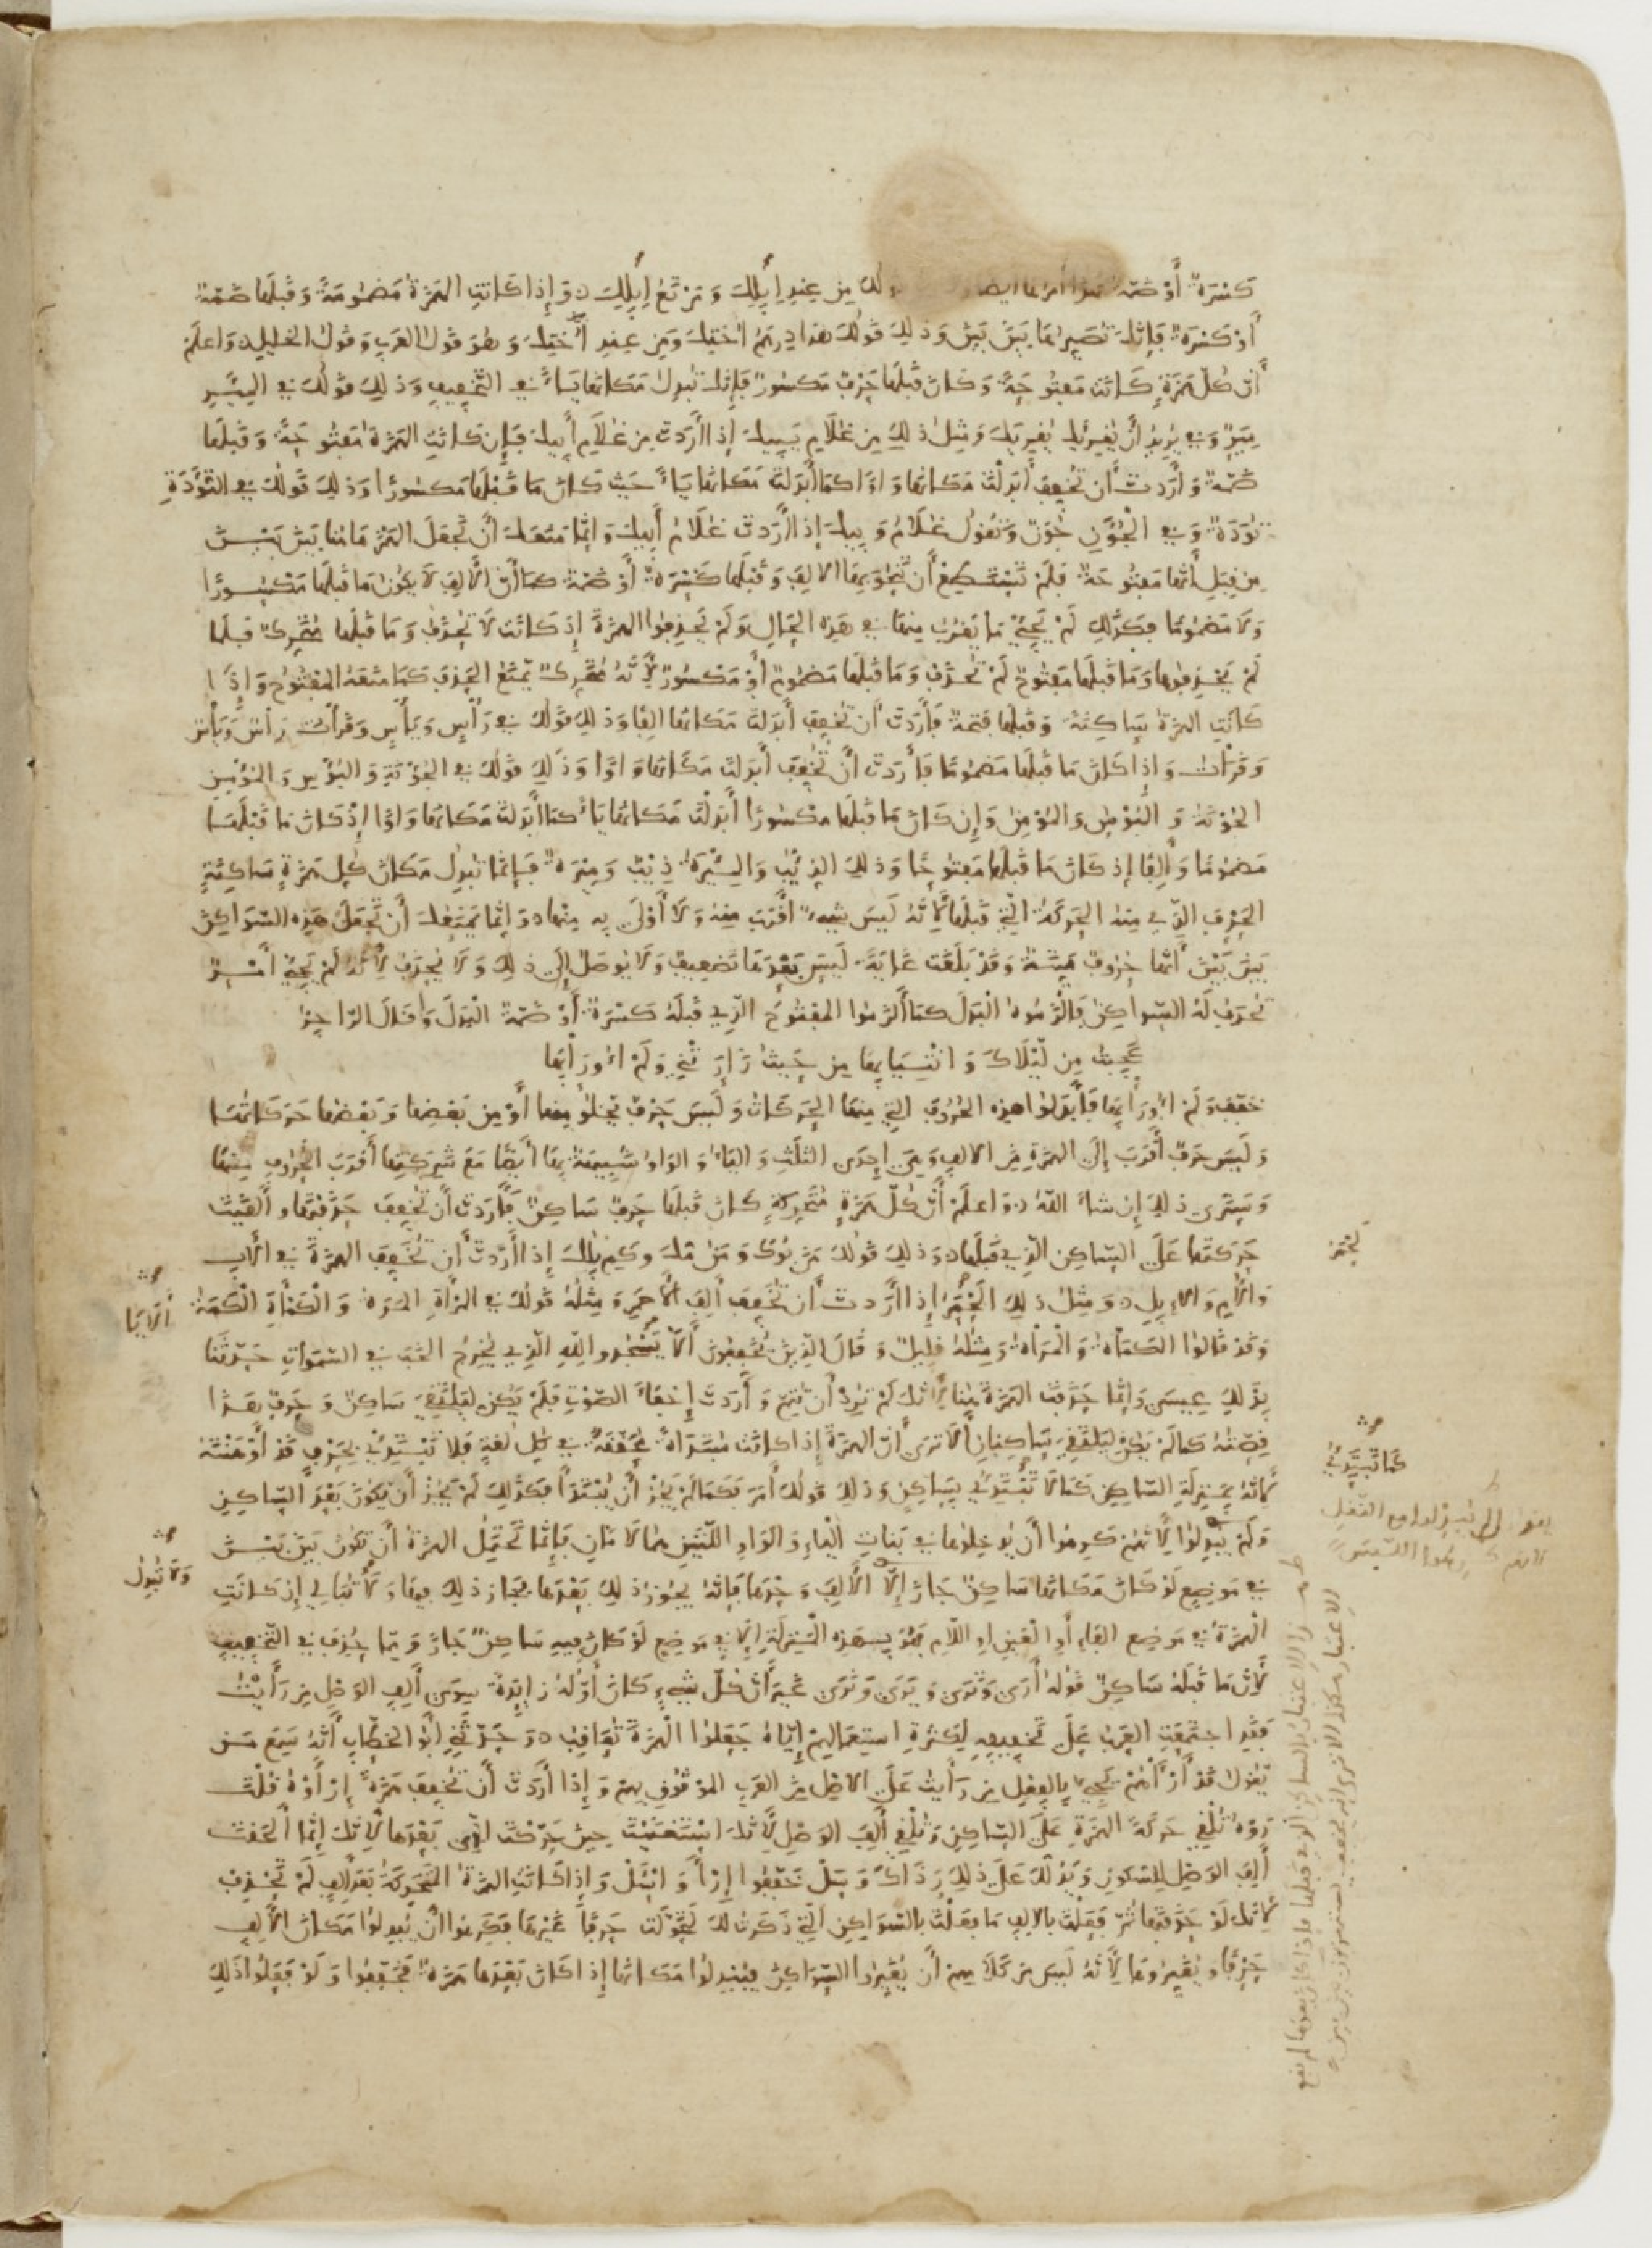 كَسْرَةٌ أَوْ ضَمّةٌ فهذا أمرها أيضا وذلك قولك مِن عِندِ إبِلِكَ وَمَرْتَعُ إبِلِكَ وَإذا كَانتِ الهَمْزةُ مَضمُومَةً وَقَبلَها ضَمّةٌ
أَوْ كَسْرَةٌ فَإنَّكَ تُصَيِّرُهَا بَيْنَ بَيْنَ وَذلِكَ قولُكَ هذا دِرهَمُ أُختِكَ وَمِن عِندِ أُختِكَ وَهُوَ قَوْلُ العَربِ وَقَوْلُ الخليلِ وَاعلَم
أَنّ كُلّ هَمْزَةٍ كَانَت مَفتُوحَةً وَكانَ قَبلَها حَرْفٌ مَكسُورٌ فإنّك تُبدِلُ مَكانَها يَاءً في التّخفِيفِ وَذلِك قَوْلُكَ في المِئَرِ
مِيَرٌ وَفي يُرِيدُ أَنْ يُقرِئَكَ يُقرِيَكَ وَمِثلُ ذلِكَ مِن غُلامِ يَبِيكَ إذا أَرَدتَ مِن غُلامِ أَبيكَ فإن كَانَتِ الهَمْزَةُ مَفتُوحَةً وَقَبلَها
ضَمّةٌ وَأَرَدتَ أَن تُخَفِّفَ أَبدَلْتَ مَكَانَها وَاوًا كَما أَبدَلتَ مَكَانَها يَاءً حَيثُ كانَ مَا قَبْلَها مَكسُورًا وَذلِكَ قَولُكَ في التُّؤَدَةِ
تُوَدَةٌ وَفي الْجُؤَنِ جُوَنٌ وَتَقُولُ غُلامُ وَبِيكَ إذا أَرَدتَ غُلامُ أَبِيكَ وَإنّما مَنَعَكَ أَنْ تَجعَلَ الهَمْزَ هَاهُنا بَيْنَ بَيْنَ
مِن قِبَلِ أَنّها مَفتُوحَةٌ فَلَمْ تَسْتَطِعْ أَن تَنْحُوَ بِها الألِفَ وَقَبْلَها كَسْرَةٌ أَوْ ضَمّةٌ كما أَنّ الألِفَ لاَ يَكُونُ مَا قَبلَها مَكسُورًا
وَلا مَضمُومًا فكذلِك لَمْ يَجِئْ مَا يَقرُبُ مِنها في هذِهِ الحَالِ وَلَم يَحذِفُوا الهَمْزةَ إذ كَانَت لاَ تُحذَفُ وَمَا قَبْلَها مُتحرِّكٌ فلمّا
لَمْ يَحْذِفُوها وَمَا قَبلَها مَفتُوحٌ لَمْ تُحذَفْ وَمَا قَبلَها مَضمُومٌ أَوْ مَكسُورٌ لأَنّهُ مُتَحَرِّكٌ يَمنَعُ الحَذفَ كَمَا مَنَعَهُ المَفتُوحُ وَإِذَا
كَانَتِ الهَمْزةُ سَاكِنَةً وَقَبلَها فَتحَةٌ فَأَرَدتَ أَن تُخَفِّفَ أَبدَلتَ مَكانَها أَلِفًا وَذلِكَ قَوْلُكَ في رَأْسٍ وَبَأْسٍ وَقَرَأْتُ رَاسٌ وَبَاسٌ
وَقَرَاتُ وَإِذا كَانَ مَا قَبلَها مَضمُومًا فَأَرَدتَ أَنْ تُخَفِّفَ أَبدَلتَ مَكَانَها وَاوًا وَذلِكَ قَولُكَ في الجُؤْنَةِ وَالبُؤْسِ وَالمُؤْمِنِ
الجُونَةُ وَالبُوسُ وَالمُومِنُ وَإِن كانَ مَا قَبلَها مَكسُورًا أَبدَلْتَ مَكَانَها يَاءً كَما أَبدَلتَ مَكَانَها وَاوًا إذْ كانَ مَا قَبْلَها
مَضمُومًا وَأَلِفًا إذ كَانَ مَا قَبلَها مَفتُوحًا وَذلِكَ الذِّئْبُ وَالمِئْرَةُ ذِيبٌ وَمِيرَةٌ فَإِنّما تُبدِلُ مَكانَ كُلِّ هَمْزةٍ سَاكِنَةٍ
الحَرْفَ الّذي مِنهُ الحَرَكَةُ الّتي قَبلَها لأَنّهُ لَيسَ شَيءٌ أَقرَبَ مِنهُ وَلا أَوْلَى بِهِ مِنها وَإنّما يَمنَعُكَ أَن تَجعَلَ هذِهِ السّوَاكِنَ
بَيْنَ بَيْنَ أَنّها حُرُوفٌ مَيِّتَةٌ وَقَدْ بَلَغَت غَايَةً لَيسَ بَعْدَهَا تَضعِيفٌ وَلا يُوصَلُ إلى ذلِكَ وَلا يُحذَفُ لأَنّهُ لَمْ يَجِئْ أَمْرٌ
تُحذَفُ لَهُ السّواكِنُ فَأَلْزَمُوهُ الْبَدَلَ كَمَا أَلزَمُوا المَفْتُوحَ الّذي قَبلَهُ كَسْرَةٌ أَوْ ضَمّةٌ الْبَدَلَ وَقَالَ الرّاجِزُ
عَجِبْتُ مِن لَيْلاكَ وَانْتِيَابِها مِن حَيثُ زَارَتْنِي وَلَمْ أُورَا بِها
خَفّفَ وَلَمْ أُورَأْ بِها فَأَبدَلوا هذِهِ الحُرُوفَ الّتي مِنها الحَرَكاتُ وَلَيسَ حَرْفٌ يَخلُو مِنها أَوْ مِن بَعْضِها وَبَعْضُها حَرَكَاتُها
وَلَيسَ حَرفٌ أَقرَبَ إلى الهَمْزَةِ مِنَ الألِفِ وَهيَ إحدَى الثّلاثِ وَاليَاءُ وَالوَاوُ شَبِيهَةٌ بِها أَيضًا مَعَ شِرْكَتِهِمَا أَقرَبَ الحُرُوفِ مِنها
وَسَتَرى ذلِكَ إن شَاءَ اللّهُ وَاعلَمْ أَنّ كُلّ هَمْزَةٍ مُتَحَرِّكَةٍ كانَ قَبلَها حَرفٌ سَاكِنٌ فَأَرَدتَ أَنْ تُخَفِّفَ حَذَفْتَها وَأَلقَيْتَ
حَرَكَتَها عَلَى السّاكِنِ الّذي قَبلَها وَذلِكَ قَولُكَ مَنَ بُوكَ وَمَنُ مُّكَ وكَمِ بِلُكَ إذا أَرَدتَ أَن تُخَفِّفَ الهَمْزَةَ في الأَبِ
وَالأُمِّ وَالإبِلِ وَمِثلُ ذلِكَ الَحْمَرُ إذا أَرَدتَ أَن تُخَفِّفَ أَلِفَ الأَحمَرِ وَمِثلُهُ قَولُكَ في المَرْأَةِ المَرَةُ وَالْكَمْأَةِ الْكَمَةُ
وَقَد قَالوا الكَمَاةُ وَالْمَرَاةُ وَمِثلُهُ قَلِيلٌ وَقَالَ الّذِينَ يُخَفِّفُونَ أَلاّ يَسْجُدوا لِلّهِ الّذي يُخرِجُ الخَبَ في السّمَوَاتِ حَدّثَنَا
بِذلِكَ عِيسَى وَإنّما حَذَفتَ الهَمْزَةَ هَاهُنا لأَنّكَ لَمْ تُرِدْ أَن تُتِمّ وَأَرَدتَ إخفَاءَ الصّوْتِ فَلَمْ يَكُن لِيَلتَقِيَ سَاكِنٌ وَحَرفٌ هذا
قِصّتُهُ كَما لَم يَكُن لِيَلتَقِيَ سَاكِنانِ أَلا تَرَى أَنّ الهَمْزَةَ إذا كانَت مُبتَدَأَةً مُحَقَّقَةٌ في كُلّ لُغَةٍ فَلا تَبْتَدِئُ بِحَرْفٍ قَد أَوْهَنْتَهُ
لأَنّهُ بِمَنزِلَةِ السّاكِنِ كَما لا تَبْتَدِئُ بِسَاكِنٍ وَذلِكَ قَولُكَ أَمَرَ فَكَمَا لَم يَجُزْ أَن يُبْتَدَأَ فَكَذلِكَ لَم يَجُزْ أَن يَكُونَ بَعْدَ السّاكِنِ
وَلَم يُبدِلُوا لأَنّهُم كَرِهُوا أَن يُدخِلُوها في بَناتِ الْيَاءِ وَالوَاوِ اللّتَيْنِ هُما لامَانِ فَإنّما تَحتَمِلُ الهَمْزَةُ أَن تَكُونَ بَيْنَ بَيْنَ
في مَوضِعٍ لَوْ كانَ مَكَانَها سَاكِنٌ جَازَ إلاّ الألِفَ وَحْدَها فَإنّهُ يَجُوزُ ذلِكَ بَعْدَها فَجَازَ ذلِكَ فِيها وَلا تُبَالي إن كَانَتِ
الْهَمْزَةُ في مَوضِعِ الفَاءِ أَوِ الْعَينِ أَوِ اللّامِ فَهُوَ بِهذِهِ المَنْزِلَةِ إلاّ في مَوضِعٍ لَوْ كانَ فِيهِ سَاكِنٌ جَازَ وَمِمّا حُذِفَ في التّخْفِيفِ
لأَنّ مَا قَبْلَهُ سَاكِنٌ قَولُهُ أَرَى وَتَرَى وَيَرَى وَنَرَى غَيرَ أَنّ كُلّ شَيءٍ كانَ أَوّلُهُ زَائِدَةً سِوَى أَلِفِ الوَصْلِ مِن رَأَيْتُ
فَقَدِ اجتَمَعَتِ العَرَبُ عَلَى تَخفِيفِهِ لِكَثرَةِ استِعمَالِهِم إيّاهُ جَعَلُوا الْهَمْزةَ تُعَاقِبُ وَحَدّثَني أَبُو الخَطّابِ أَنّهُ سَمِعَ مَن
يَقولُ قَد أَرْأَهُمْ يَجِيءُ بِالفِعْلِ مِن رَأَيتُ عَلَى الأصْلِ مِنَ العَرَبِ المَوْثُوقِ بِهِم وَإذا أَرَدتَ أَن تُخَفِّفَ هَمْزَةَ إرْأَوْهُ قُلْتَ
رَوْهُ تُلْقِي حَرَكَةَ الهَمْزَةِ عَلَى السّاكِنِ وَتُلْقِي أَلِفَ الوَصْلِ لأَنّكَ اسْتَغنَيْتَ حِينَ حَرّكتَ الّذي بَعْدَها لأَنّكَ إنّما أَلحَقتَ
أَلِفَ الوَصْلِ لِلسّكُونِ وَيَدُلّكَ عَلَى ذلِكَ رَ ذَاكَ وَسَلْ خَفّفُوا إرْأَ وَاسْئَلْ وَإذا كانَتِ الهَمْزَةُ المُتَحَرّكَةُ بَعدَ أَلِفٍ لَمْ تُحْذَفْ
لأَنّكَ لَوْ حَذَفتَها ثُمّ فَعَلْتَ بِالألِفِ مَا فَعَلْتَ بالسّوَاكِنِ الّتي ذَكَرتُ لَكَ لَتَحَوّلَت حَرفًا غَيْرَهَا فَكَرِهُوا أَن يُبدِلُوا مَكَانَ الألِفِ
حَرْفًا وَيُغَيّرُوهَا لأَنّهُ لَيسَ مِن كَلامِهِم أَن يُغَيّرُوا السّوَاكِنَ فَيُبْدِلُوا مَكَانَها إذا كانَ بَعْدَها هَمْزَةٌ فَخَفّفُوا وَلَوْ فَعَلُوا ذَلِكَ
كَمَا تَبْتَدِئُ
وَلا تُبدِلُ